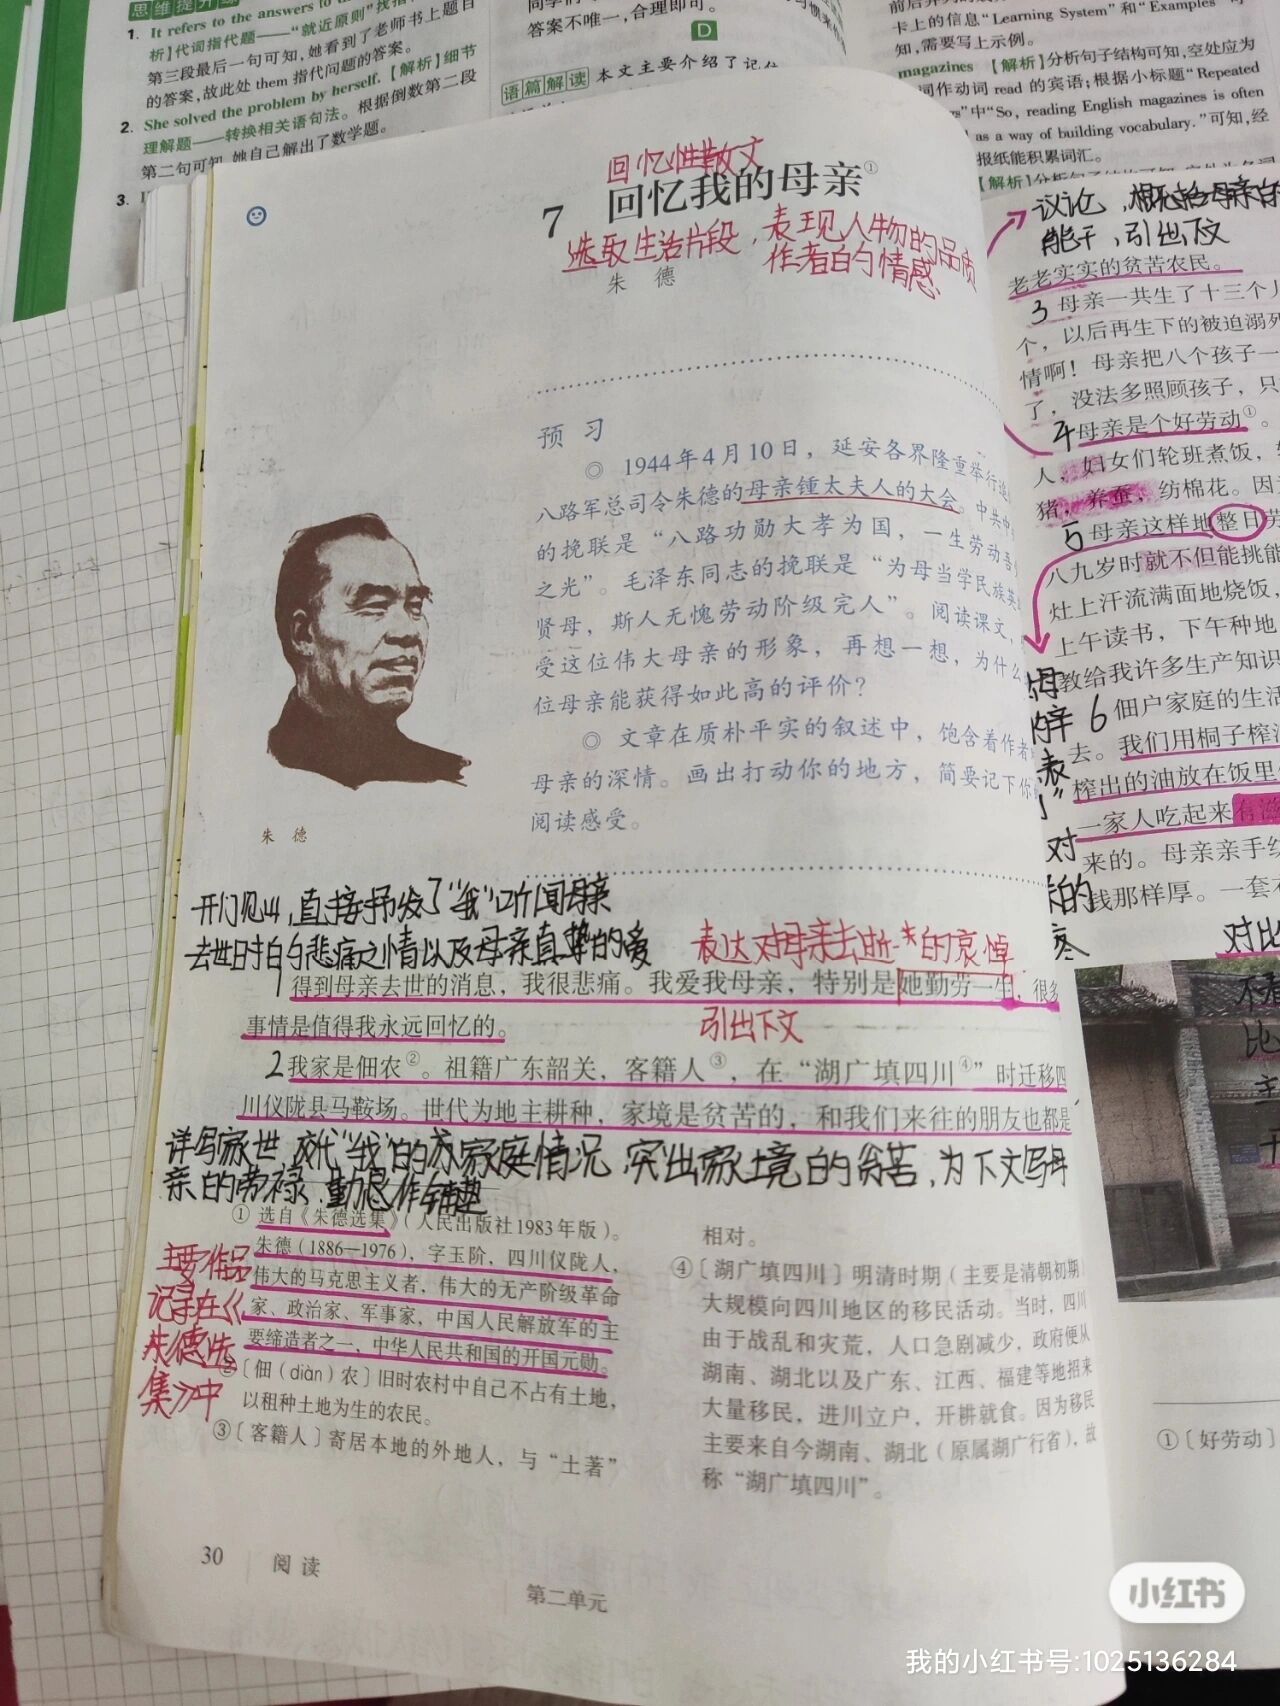 思维提升练
1. It refers to the answers to the
析】代词指代题——“就近原则”找指
第三段最后一句可知,她看到了老师书上题目
的答案,故此处 them 指代问题的答案。
2. She solved the problem by herself. 【解析】细节
理解题——转换相关语句法。根据倒数第二段
第二句可知,她自己解出了数学题。
3.
答案不唯一,合理即可。
D
语篇解读 本文主要介绍了记
卡上的信息“Learning System”和“Examples”
知,需要写上示例。
magazines 【解析】分析句子结构可知,空处应为
词作动词 read 的宾语;根据小标题“Repeated
”中“So, reading English magazines is often
as a way of building vocabulary.”可知,经
报纸能积累词汇。
回忆性散文
7 回忆我的母亲①
选取生活片段,表现人物的品质
作者的情感
朱 德
预 习
◎ 1944年4月10日,延安各界隆重举行追
八路军总司令朱德的母亲锺太夫人的大会。中共中
的挽联是“八路功勋大孝为国,一生劳动吾
之光”。毛泽东同志的挽联是“为母当学民族英
贤母,斯人无愧劳动阶级完人”。阅读课文,
受这位伟大母亲的形象,再想一想,为什么
位母亲能获得如此高的评价?
◎ 文章在质朴平实的叙述中,饱含着作者
母亲的深情。画出打动你的地方,简要记下你
阅读感受。
朱 德
开门见山,直接抒发了“我”听闻母亲
去世时的悲痛之情以及母亲真挚的爱
表达对母亲去逝的哀悼
1 得到母亲去世的消息,我很悲痛。我爱我母亲,特别是她勤劳一生,很多
事情是值得我永远回忆的。
引出下文
2 我家是佃农②。祖籍广东韶关,客籍人③,在“湖广填四川④”时迁移四
川仪陇县马鞍场。世代为地主耕种,家境是贫苦的,和我们来往的朋友也都是
详写家世,交代“我”的家庭情况,突出家境的贫苦,为下文写母
亲的劳禄、勤恳作铺垫
① 选自《朱德选集》(人民出版社1983年版)。
朱德(1886—1976),字玉阶,四川仪陇人,
伟大的马克思主义者,伟大的无产阶级革命
家、政治家、军事家,中国人民解放军的主
要缔造者之一,中华人民共和国的开国元勋。
② 〔佃(diàn)农〕旧时农村中自己不占有土地,
以租种土地为生的农民。
③〔客籍人〕寄居本地的外地人,与“土著”
主要作品
记录在《
朱德选
集》中
相对。
④〔湖广填四川〕明清时期(主要是清朝初期)
大规模向四川地区的移民活动。当时,四川
由于战乱和灾荒,人口急剧减少,政府便从
湖南、湖北以及广东、江西、福建等地招来
大量移民,进川立户,开耕就食。因为移民
主要来自今湖南、湖北(原属湖广行省),故
称“湖广填四川”。
30 阅 读
第二单元
议论,概括母亲的
能干,引出下文
老老实实的贫苦农民。
3 母亲一共生了十三个儿
个,以后再生下的被迫溺死
情啊!母亲把八个孩子一
了,没法多照顾孩子,只
4 母亲是个好劳动①。
人,妇女们轮班煮饭,
猪,养蚕,纺棉花。因
5 母亲这样地整日劳
八九岁时就不但能挑能
灶上汗流满面地烧饭,
上午读书,下午种地
教给我许多生产知识
6 佃户家庭的生活
去。我们用桐子榨油
榨出的油放在饭里
一家人吃起来有滋
来的。母亲亲手纺
钱那样厚。一套衣
对比
①〔好劳动〕
小红书
我的小红书号:1025136284